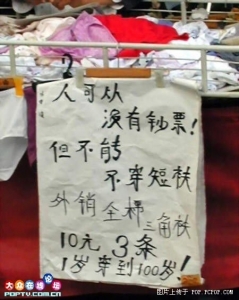 人可以
没有钞票!
但不能
不穿短衭
外销全棉
三角衭
10元3条
1岁穿到100岁!
大众在线论坛
POPTV.COM.CN
图片上传于 POP.PCPOP.COM